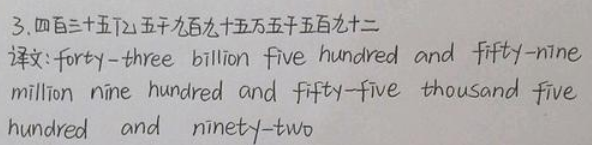 3.四百三十五亿五千九百九十五万五千五百九十二
译文:forty-three billion five hundred and fifty-nine
million nine hundred and fifty-five thousand five
hundred and ninety-two